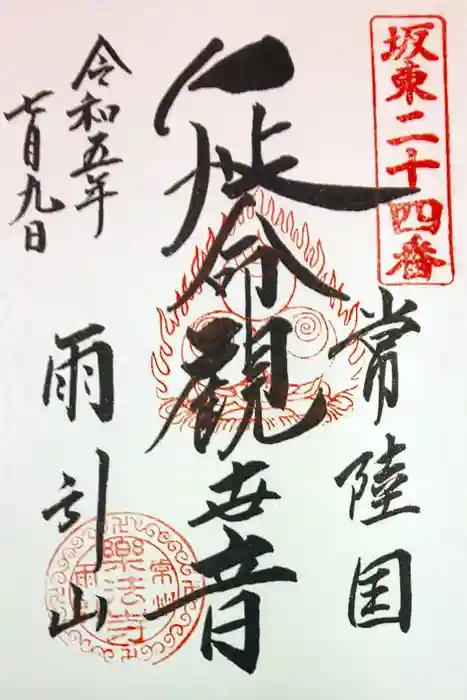 坂東二十四番
常陸国
延命観世音
令和五年
七月九日
雨引山
楽法寺
常州
雨引